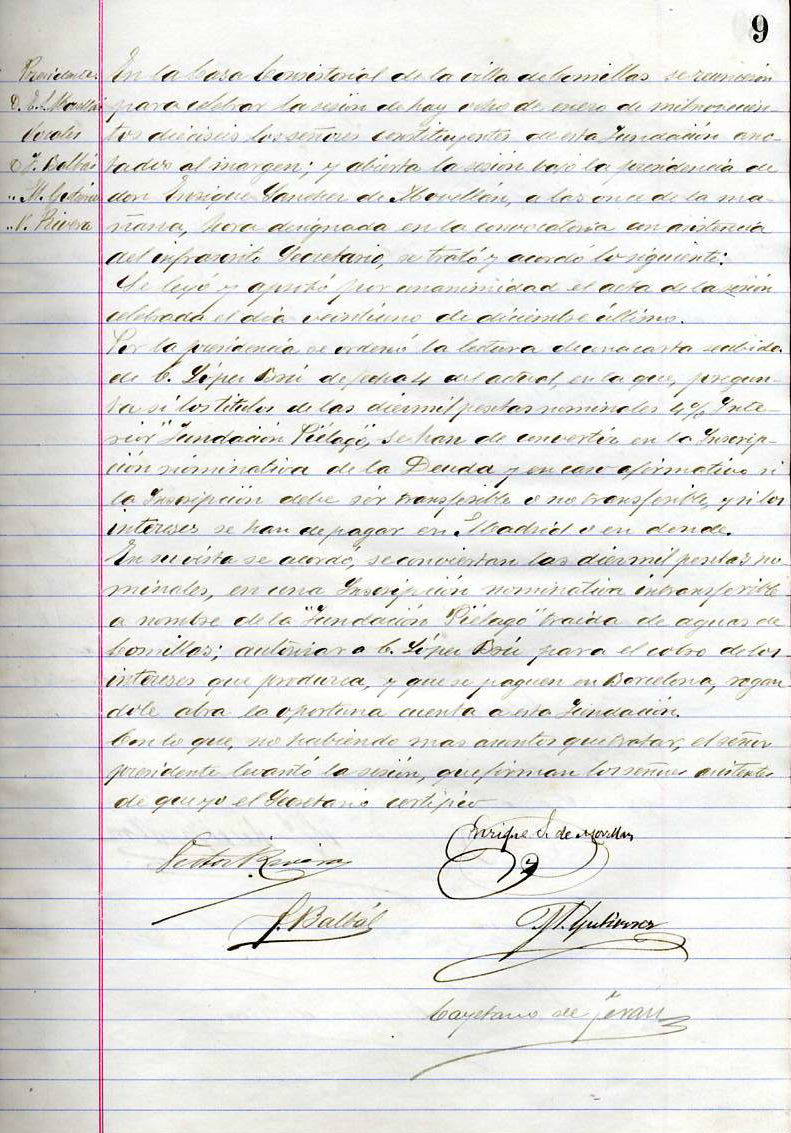 9
Presidente
D. E. S. Movellán
Vocales
D. J. Balbás
" M. Gutiérrez
" V. Rivera
En la Casa Consistorial de la villa de Comillas se reunieron
para celebrar la sesión de hoy ocho de enero de mil novecien-
tos dieciseis los señores constituyentes de esta Fundación ano-
tados al margen; y abierta la sesión bajo la presidencia de
don Enrique Sanchez de Movellán, a las once de la ma-
ñana, hora designada en la convocatoria con asistencia
del infrascrito Secretario, se trató y acordó lo siguiente:
Se leyó y aprobó por unanimidad el acta de la sesión
celebrada el día veintiuno de diciembre último.
Por la presidencia se ordenó la lectura de una carta recibida
de C. López Brú de fecha 4 del actual, en la que, pregun-
ta si los titulos de las diez mil pesetas nominales 4% Inte-
rior "Fundación Piélago", se han de convertir en la Inscrip-
ción nominativa de la Deuda y en caso afirmativo si
la Inscripción debe ser transferible o no transferible, y si los
intereses se han de pagar en Madrid o en donde.
En su vista se acordó, se conviertan las diez mil pesetas no-
minales, en una Inscripción nominativa intransferible
a nombre de la "Fundación Piélago" traida de aguas de
Comillas; autorizar a C. López Brú para el cobro de los
intereses que produzca, y que se paguen en Barcelona, rogan
dole abra la oportuna cuenta a esta Fundación.
Con lo que, no habiendo mas asuntos que tratar, el señor
presidente levantó la sesión, que firman los señores asistentes
de que yo el Secretario certifico
Enrique S. de Movellán
Victor Rivera
J. Balbás
M. Gutierrez
Cayetano de Terán